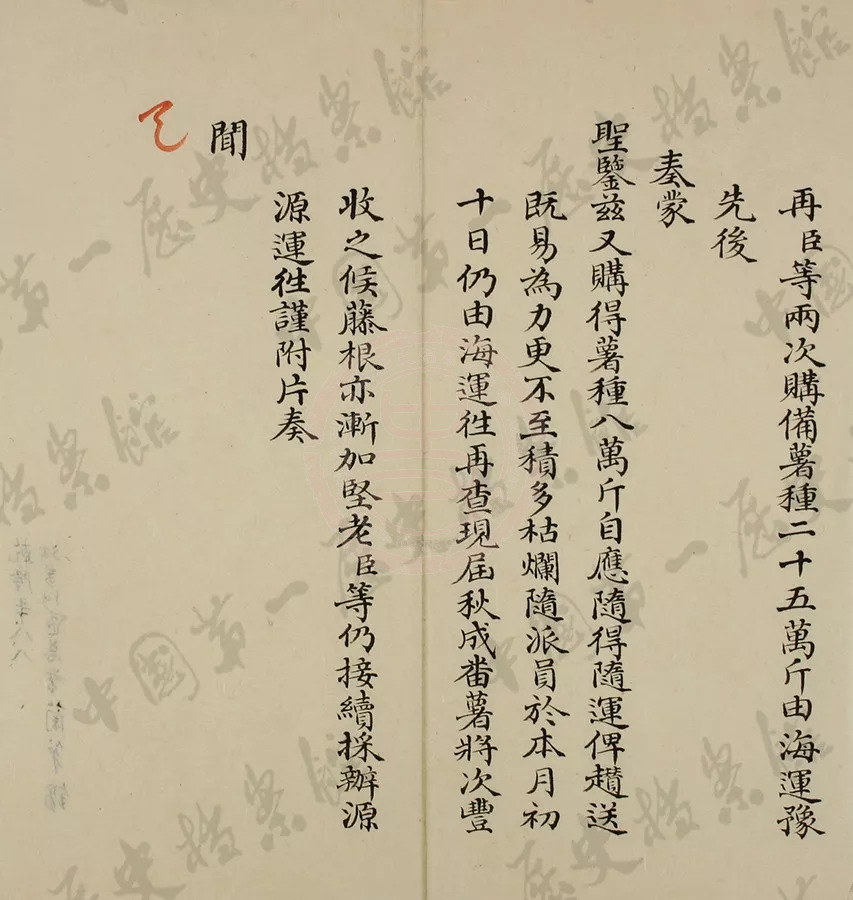 再臣等兩次購備薯種二十五萬斤由海運豫
先後
奏蒙
聖鑒茲又購得薯種八萬斤自應隨得隨運俾趲送
既易為力更不至積多枯爛隨派員於本月初
十日仍由海運徃再查現届秋成畨薯將次豐
收之候藤根亦漸加堅老臣等仍接續採辦源
源運徃謹附片奏
聞
中國第一歷史檔案館